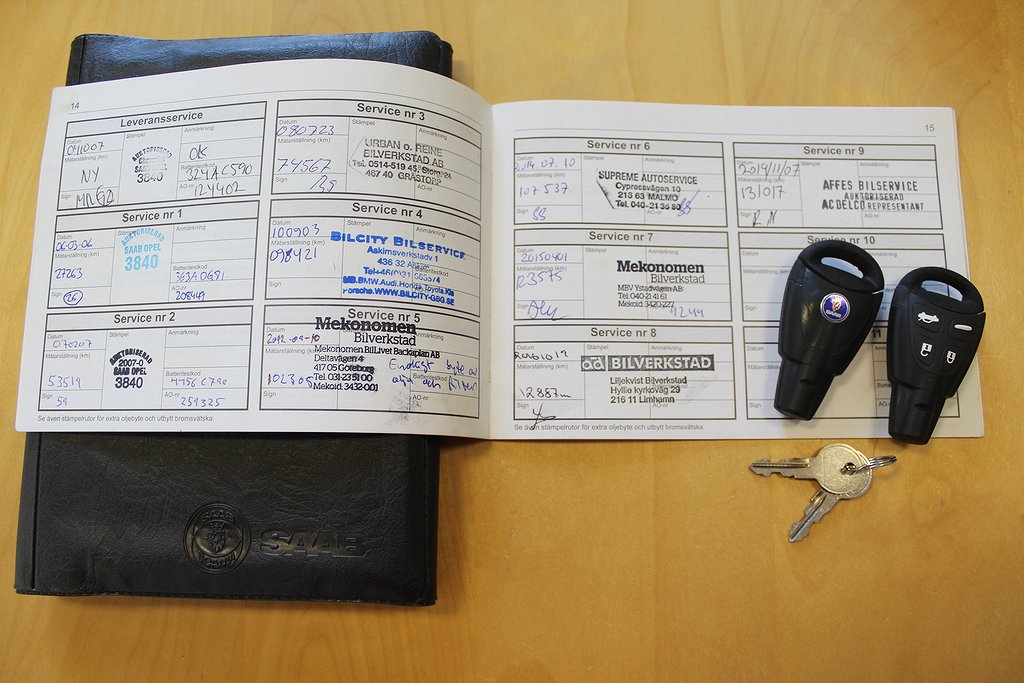 14
Leveransservice
Datum
Stämpel
Anmärkning
041007
OK
Mätarställning (km)
AUKTORISERAD
SAAB OPEL
3840
Batteritestkod
324AC590
NY
Sign
AO-nr
124402
Service nr 1
Datum
Stämpel
Anmärkning
06-03-06
AUKTORISERAD
SAAB OPEL
3840
Mätarställning (km)
27263
Batteritestkod
363A0691
Sign
AO-nr
208449
Service nr 2
Datum
Stämpel
Anmärkning
070207
AUKTORISERAD
2007-0
SAAB OPEL
3840
Mätarställning (km)
53519
Batteritestkod
Sign
AO-nr
259325
Se även stämpelrutor för extra oljebyte och utbytt bromsvätska.
Service nr 3
Datum
Stämpel
Anmärkning
080723
URBAN o. REINE
BILVERKSTAD AB
Tel. 0514-519 45, Storg 24
467 40 GRÄSTORP
Mätarställning (km)
74567
Sign
AO-nr
Service nr 4
Datum
Stämpel
Anmärkning
100903
BILCITY BILSERVICE
Askimsverkstadv 1
436 32 Askim
Mätarställning (km)
098421
MB.BMW.Audi.Honda.Toyota.Kia
Porsche.WWW.BILCITY-GBG.SE
Sign
Service nr 5
Datum
Mekonomen
Bilverkstad
2012-09-10
Mekonomen BilLivet Backaplan AB
Deltavägen 4
417 05 Göteborg
Tel: 031-23 51 00
Mekoid: 3432-001
Endast byte av
olja och filter
102305
Sign
AO-nr
15
Service nr 6
Datum
Stämpel
Anmärkning
2014.07.10
SUPREME AUTOSERVICE
Cypressvägen 10
213 63 MALMÖ
Tel. 040-21 35 80
Mätarställning (km)
107 537
Sign
AO-nr
Service nr 7
Datum
Stämpel
Anmärkning
20150401
Mekonomen
Bilverkstad
MBV Ystadvägen AB
Tel: 040-21 41 61
Mekoid: 3420-227
Mätarställning (km)
Sign
4244
Service nr 8
Datum
Stämpel
Anmärkning
ad BILVERKSTAD
Liljekvist Bilverkstad
Hyllie kyrkoväg 29
216 11 Limhamn
Sign
AO-nr
Se även stämpelrutor för extra oljebyte och utbytt bromsvätska.
Service nr 9
Datum
Stämpel
Anmärkning
2019/11/07
AFFES BILSERVICE
AUKTORISERAD
AC DELCO REPRESENTANT
Mätarställning (km)
131017
Sign
AO-nr
Service nr 10
Datum
11
SAAB
SAAB
SCANIA
SAAB